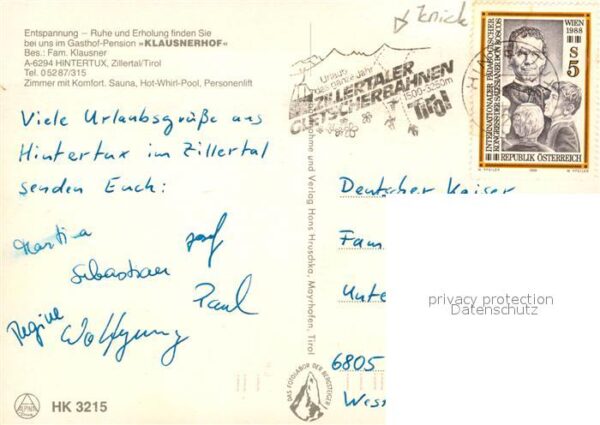 Entspannung – Ruhe und Erholung finden Sie
bei uns im Gasthof-Pension »KLAUSNERHOF«
Bes.: Fam. Klausner
A-6294 HINTERTUX, Zillertal/Tirol
Tel. 0 52 87/315
Zimmer mit Komfort. Sauna, Hot-Whirl-Pool, Personenlift
Viele Urlaubsgrüße aus
Hintertux im Zillertal
senden Euch:
Martina Josef
Sebastian
Paul
Regine Wolfgang
HK 3215
Urlaub
das ganze Jahr
ZILLERTALER
GLETSCHERBAHNEN
1500-3250m
Tirol
WIEN
1988
S 5
INTERNATIONALER PÄDAGOGISCHER
KONGRESS DER SALESIANER DON BOSCOS
REPUBLIK ÖSTERREICH
und Verlag Hans Hruschka, Mayrhofen, Tirol
DAS FOTOLABOR DER BERGSTEIGER
Deutscher Kaiser
Fam
Unte
6805
Wes
privacy protection
Datenschutz